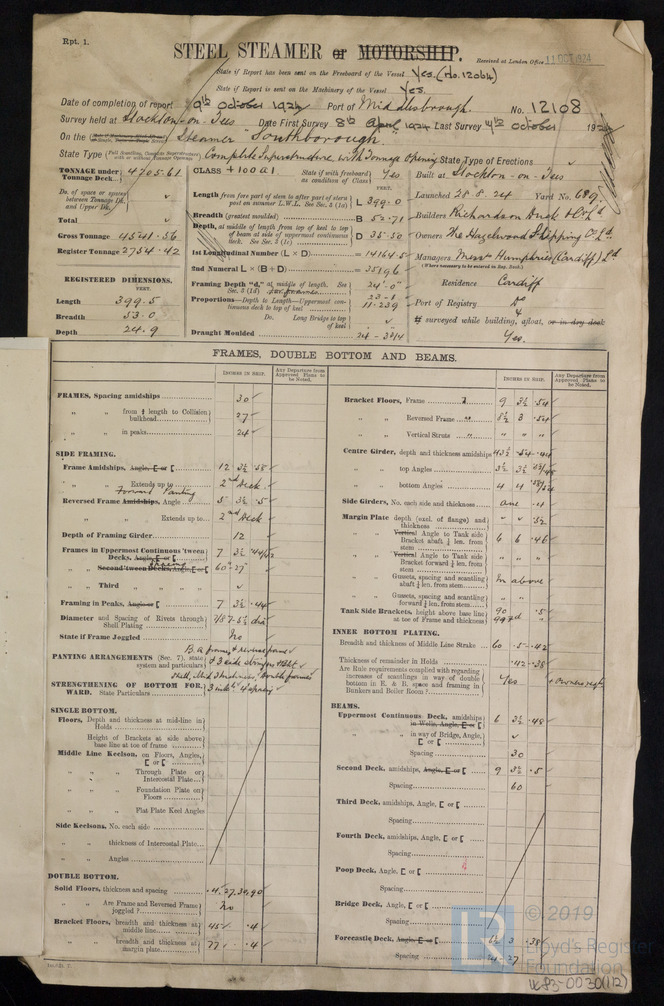 Rpt. 1.
STEEL STEAMER or MOTORSHIP.
Received at London Office 11 OCT 1924
State if Report has been sent on the Freeboard of the Vessel Yes. (No. 12064)
State if Report is sent on the Machinery of the Vessel Yes.
Date of completion of report 9th October 1924 Port of Middlesbrough. No. 12108
Survey held at Stockton-on-Tees Date First Survey 8th April 1924 Last Survey 4th October 192
On the Steamer "Southborough."
State Type Complete Superstructure with Tonnage Opening State Type of Erections
TONNAGE under Tonnage Deck 4205.61
Do. of space or spaces between Tonnage Dk. and Upper Dk.
Total
Gross Tonnage 4541.56
Register Tonnage 2754.42
REGISTERED DIMENSIONS.
FEET.
Length 399.5
Breadth 53.0
Depth 24.9
CLASS +100A1 State if with freeboard as condition of Class Yes
FEET.
Length from fore part of stem to after part of stern post on summer L.W.L. See Sec. 3 (1a) L 399.0
Breadth (greatest moulded) B 52.71
Depth, at middle of length from top of keel to top of beam at side of uppermost continuous deck. See Sec. 3 (1c) D 35.50
1st Longitudinal Number (L × D) = 14164.5
2nd Numeral L × (B + D) = 35196
Framing Depth "d," at middle of length. See Sec. 3 (1d) for frames 24'.0"
Proportions—Depth to Length—Uppermost continuous deck to top of keel 11.239
Do. Long Bridge to top of keel
Draught Moulded 24 - 3¼
Built at Stockton-on-Tees
Launched 28.8.24 Yard No. 689.
Builders Richardson Duck & Co Ltd
Owners The Hazelwood Shipping Co. Ld.
Managers Messrs Humphries (Cardiff) Ld
(Where necessary to be entered in Reg. Book.)
Residence Cardiff
Port of Registry Do
If surveyed while building, afloat, or in dry dock
Yes.
FRAMES, DOUBLE BOTTOM AND BEAMS.
INCHES IN SHIP.
Any Departure from Approved Plans to be Noted.
FRAMES, Spacing amidships 30
" " from ¾ length to Collision bulkhead 27
" " in peaks 24
SIDE FRAMING.
Frame Amidships, Angle, E or [ 12 3½ .55
" " Extends up to 2nd Deck
Forward Panting
Reversed Frame Amidships, Angle 5 3½ .5
" " Extends up to 2nd Deck
Depth of Framing Girder 12
Frames in Uppermost Continuous 'tween Decks, Angle, E or [ 7 3½
" " Second 'tween Decks, Angle, E or [ 60 27
" " Third "
Framing in Peaks, Angle or [ 7 3½ .44
Diameter and Spacing of Rivets through Shell Plating 7/8
State if Frame Joggled No
PANTING ARRANGEMENTS (Sec. 7), state system and particulars
STRENGTHENING OF BOTTOM FORWARD. State Particulars
SINGLE BOTTOM.
Floors, Depth and thickness at mid-line in Holds
Height of Brackets at side above base line at toe of frame
Middle Line Keelson, on Floors, Angles, E or [
" " " Through Plate or Intercostal Plate
" " " Foundation Plate on Floors
" " " Flat Plate Keel Angles
Side Keelsons, No. each side
" " thickness of Intercostal Plate
" " Angles
DOUBLE BOTTOM.
Solid Floors, thickness and spacing
" " Are Frame and Reversed Frame joggled? No
Bracket Floors, breadth and thickness at middle line 45 .4
" " breadth and thickness at margin plate 27 .4
Bracket Floors, Frame 9 3½ .54
" " Reversed Frame 8½ 3 .54
" " Vertical Struts " " "
Centre Girder, depth and thickness amidships 43½ .54 .44
" " top Angles 3½ 3½
" " bottom Angles 4 4
Side Girders, No. each side and thickness one .4
Margin Plate depth (excl. of flange) and thickness .52
" " Vertical Angle to Tank side Bracket abaft ¼ len. from stem 6 6 .46
" " Vertical Angle to Tank side Bracket forward ¼ len. from stem " " "
" " Gussets, spacing and scantling abaft ¼ len. from stem In above
" " Gussets, spacing and scantling forward ¼ len. from stem " "
Tank Side Brackets, height above base line at toe of Frame and thickness 90 .5
INNER BOTTOM PLATING.
Breadth and thickness of Middle Line Strake 60 .5 .42
Thickness of remainder in Holds .42 .38
Are Rule requirements complied with regarding increases of scantlings in way of double bottom in E. & B. space and framing in Bunkers and Boiler Room? Yes
BEAMS.
Uppermost Continuous Deck, amidships in Wells, Angle, E or [ 6 3½ .48
" " in way of Bridge, Angle, E or [
Spacing 30
Second Deck, amidships, Angle, E or [ 9 3½ .5
Spacing 60
Third Deck, amidships, Angle, E or [
Spacing
Fourth Deck, amidships, Angle, E or [
Spacing
Poop Deck, Angle, E or [
Spacing
Bridge Deck, Angle, E or [
Spacing
Forecastle Deck, Angle, E or [ 6½ 3 .38
Spacing 24-27
© 2019
Lloyd's Register
Foundation
W83-0030 (1/2)